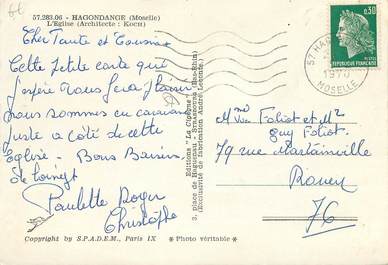 57.283.06 - HAGONDANGE (Moselle)
L'Eglise (Architecte : KOCH)
Cher Tante et Cousins
Cette petite carte qui
j'espère vous fera plaisir
nous sommes en caravane
juste à côté de cette
église - Bons Baisers
de Lorraine
Paulette Roger
Christophe
Editions "La Cigogne"
3, place de Haguenau - Strasbourg (Bas-Rhin)
(Exclusivité de fabrication André Leconte)
0,30
REPUBLIQUE FRANÇAISE
57 HAGONDANGE
1970
MOSELLE
Mme Vve Foliot et Mr
Guy Foliot
79 rue Martainville
Rouen
76
Copyright by S.P.A.D.E.M., Paris IX * Photo véritable *